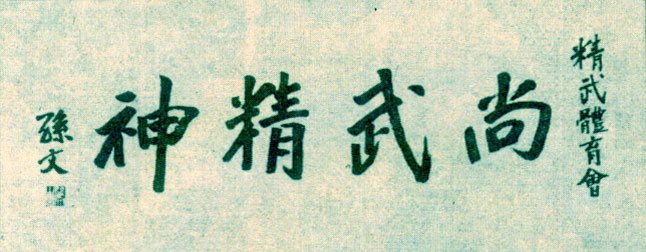 精武體育會
尚武精神
孫文